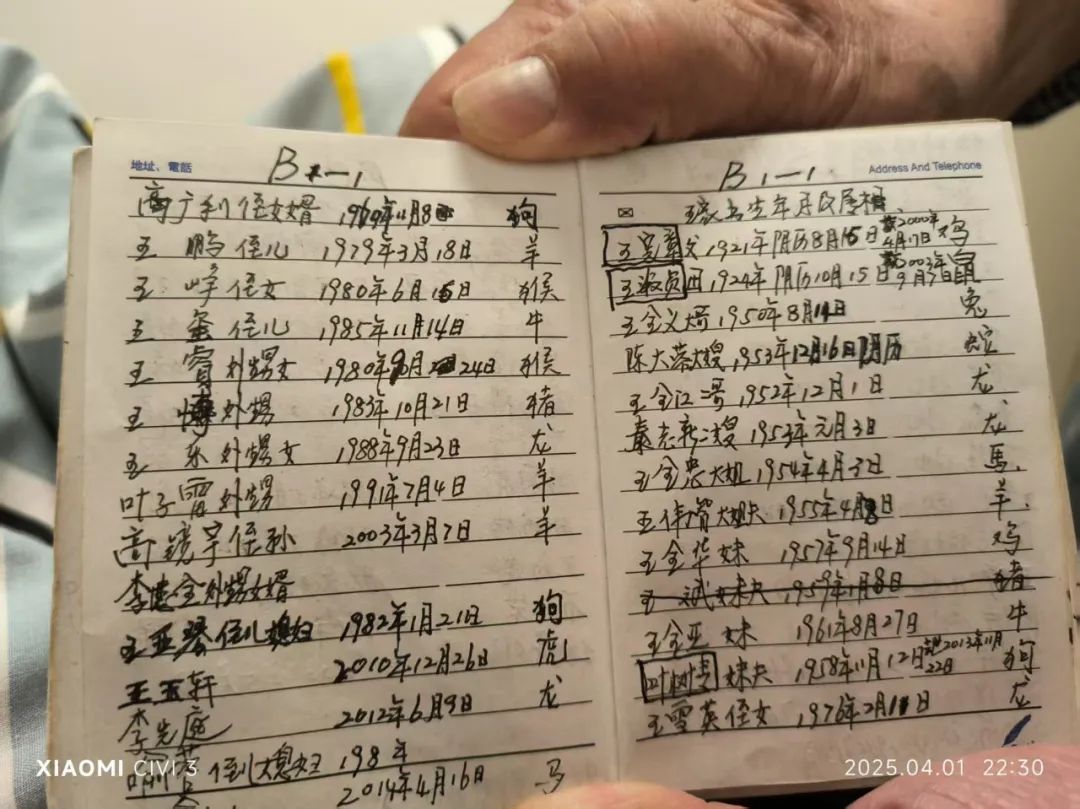 地址、電話
B 一1
高广利侄女婿 1970年11月8日 狗
王 鹏侄儿 1979年3月18日 羊
王 峥侄女 1980年6月15日 猴
王 蛋侄儿 1985年11月14日 牛
王 賓外甥女 1980年9月24日 猴
王 博外甥 1983年10月21日 猪
王 乐外甥女 1988年9月23日 龙
叶子雷外甥 1991年7月4日 羊
高 宇侄孙 2003年3月7日 羊
李忠全外甥女婿
王亚琴侄儿媳妇 1982年1月21日 狗
王玉轩 2010年12月26日 虎
李先庭 2012年6月9日 龙
侄儿媳妇 198 年
2014年4月16日 马
Address And Telephone
B 1一1
出生年月及属相
王 父 1921年阴历8月15日 2000年4月17日 鸡
王淑贞母 1924年阴历10月15日 2003年9月7日 鼠
王全义大哥 1950年8月1日 兔
陈大蓉大嫂 1953年12月16日阴历 蛇
王全江二哥 1952年12月1日 龙
秦志新二嫂 1953年元月3日 龙
王全忠大姐 1954年4月3日 馬
王伟增大姐夫 1955年4月8日 羊
王全华妹 1957年9月14日 鸡
王 斌妹夫 1959年1月8日 猪
王全亚妹 1961年8月27日 牛
叶树青妹夫 1958年11月12日 2013年11月22日 狗
王雪英侄女 1976年2月1日 龙
XIAOMI CIVI 3
2025.04.01 22:30